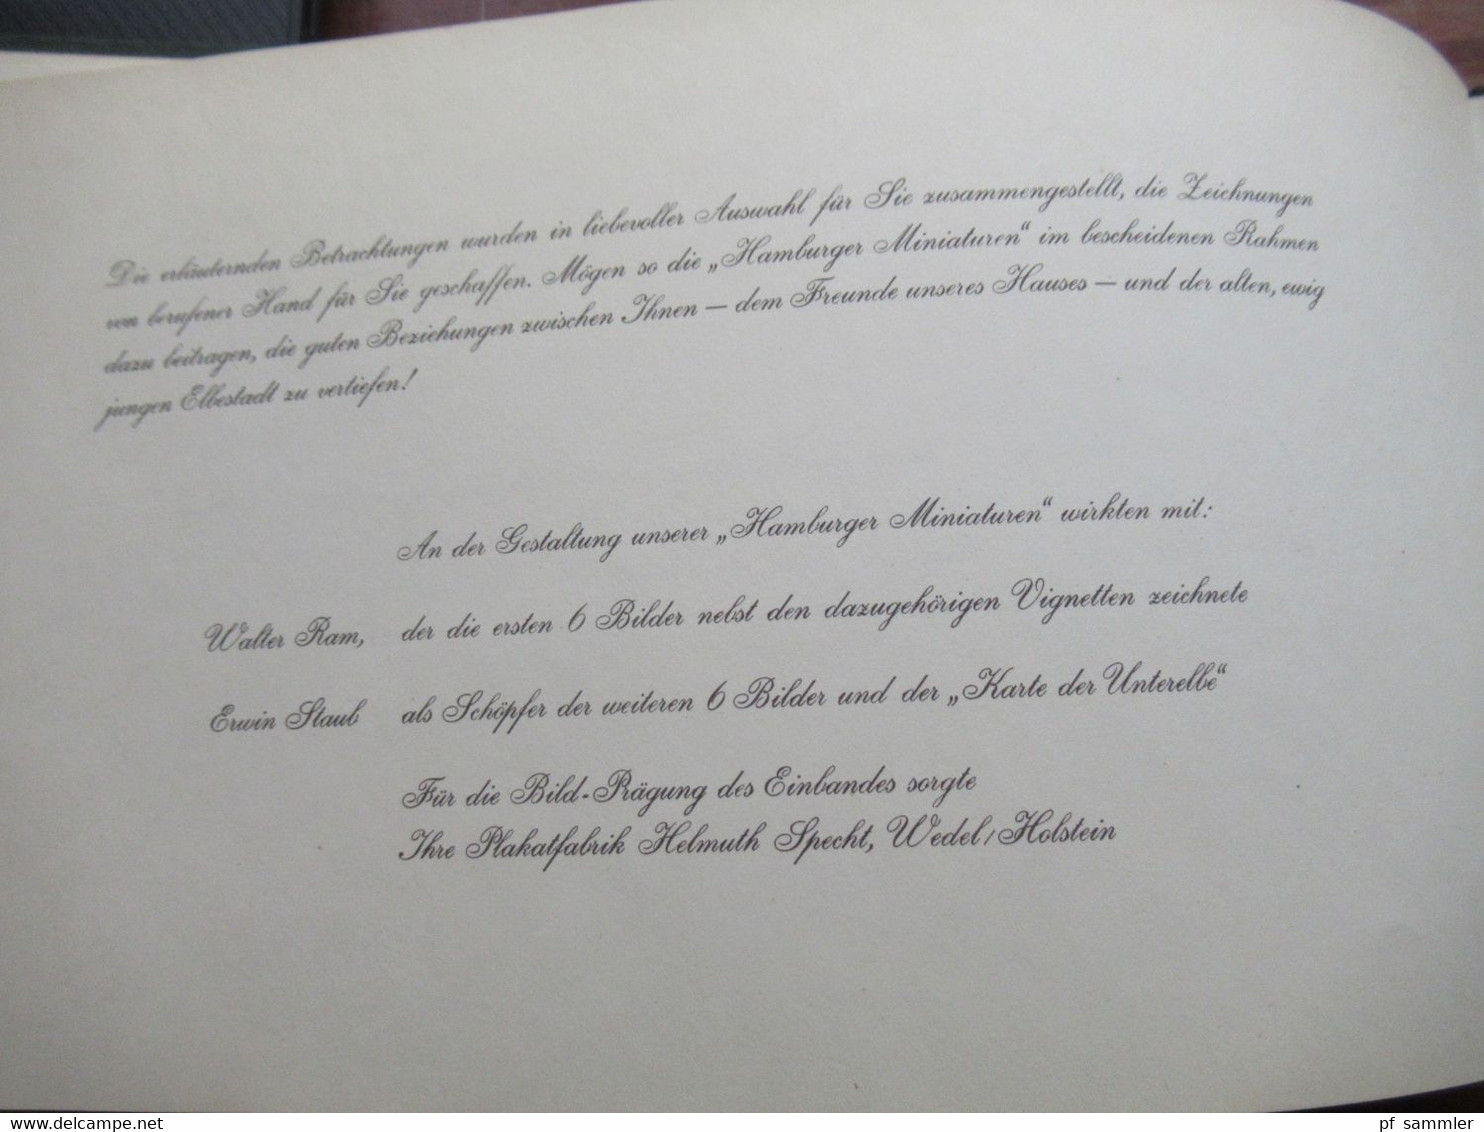 Die erläuternden Betrachtungen wurden in liebevoller Auswahl für Sie zusammengestellt, die Zeichnungen
von berufener Hand für Sie geschaffen. Mögen so die „Hamburger Miniaturen“ im bescheidenen Rahmen
dazu beitragen, die guten Beziehungen zwischen Ihnen — dem Freunde unseres Hauses — und der alten, ewig
jungen Elbestadt zu vertiefen!
An der Gestaltung unserer „Hamburger Miniaturen“ wirkten mit:
Walter Ram, der die ersten 6 Bilder nebst den dazugehörigen Vignetten zeichnete
Erwin Staub als Schöpfer der weiteren 6 Bilder und der „Karte der Unterelbe“
Für die Bild-Prägung des Einbandes sorgte
Ihre Plakatfabrik Helmuth Specht, Wedel/Holstein
www.delcampe.net
pf_sammler